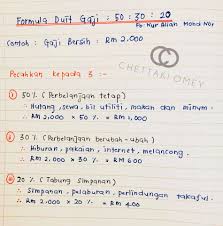 Formula Duit Gaji : 50 : 30 : 20
Fb: Nur Alian Mohd Nor
Contoh : Gaji Bersih = RM 2,000
CHETTAKLOMEY
Pecahkan kepada 3 :-
i) 50% (Perbelanjaan tetap)
∴ Hutang, sewa, bil utiliti, makan dan minum.
∴ RM 2,000 x 50 % = RM 1,000
ii) 30% (Perbelanjaan berubah-ubah)
∴ Hiburan, pakaian, internet, melancong.
∴ RM 2,000 x 30 % = RM 600
iii) 20% (Tabung Simpanan)
∴ Simpanan, pelaburan, perlindungan takaful.
∴ RM 2,000 x 20% = RM 400